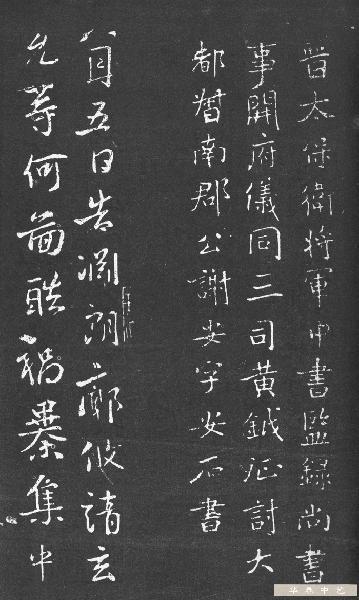 晉太保衛將軍中書監錄尚書
事開府儀同三司黃鉞征討大
都督南郡公謝安字安石書
月五日告淵朗廓攸靖玄
允等何圖酷禍暴集中
华夏中艺